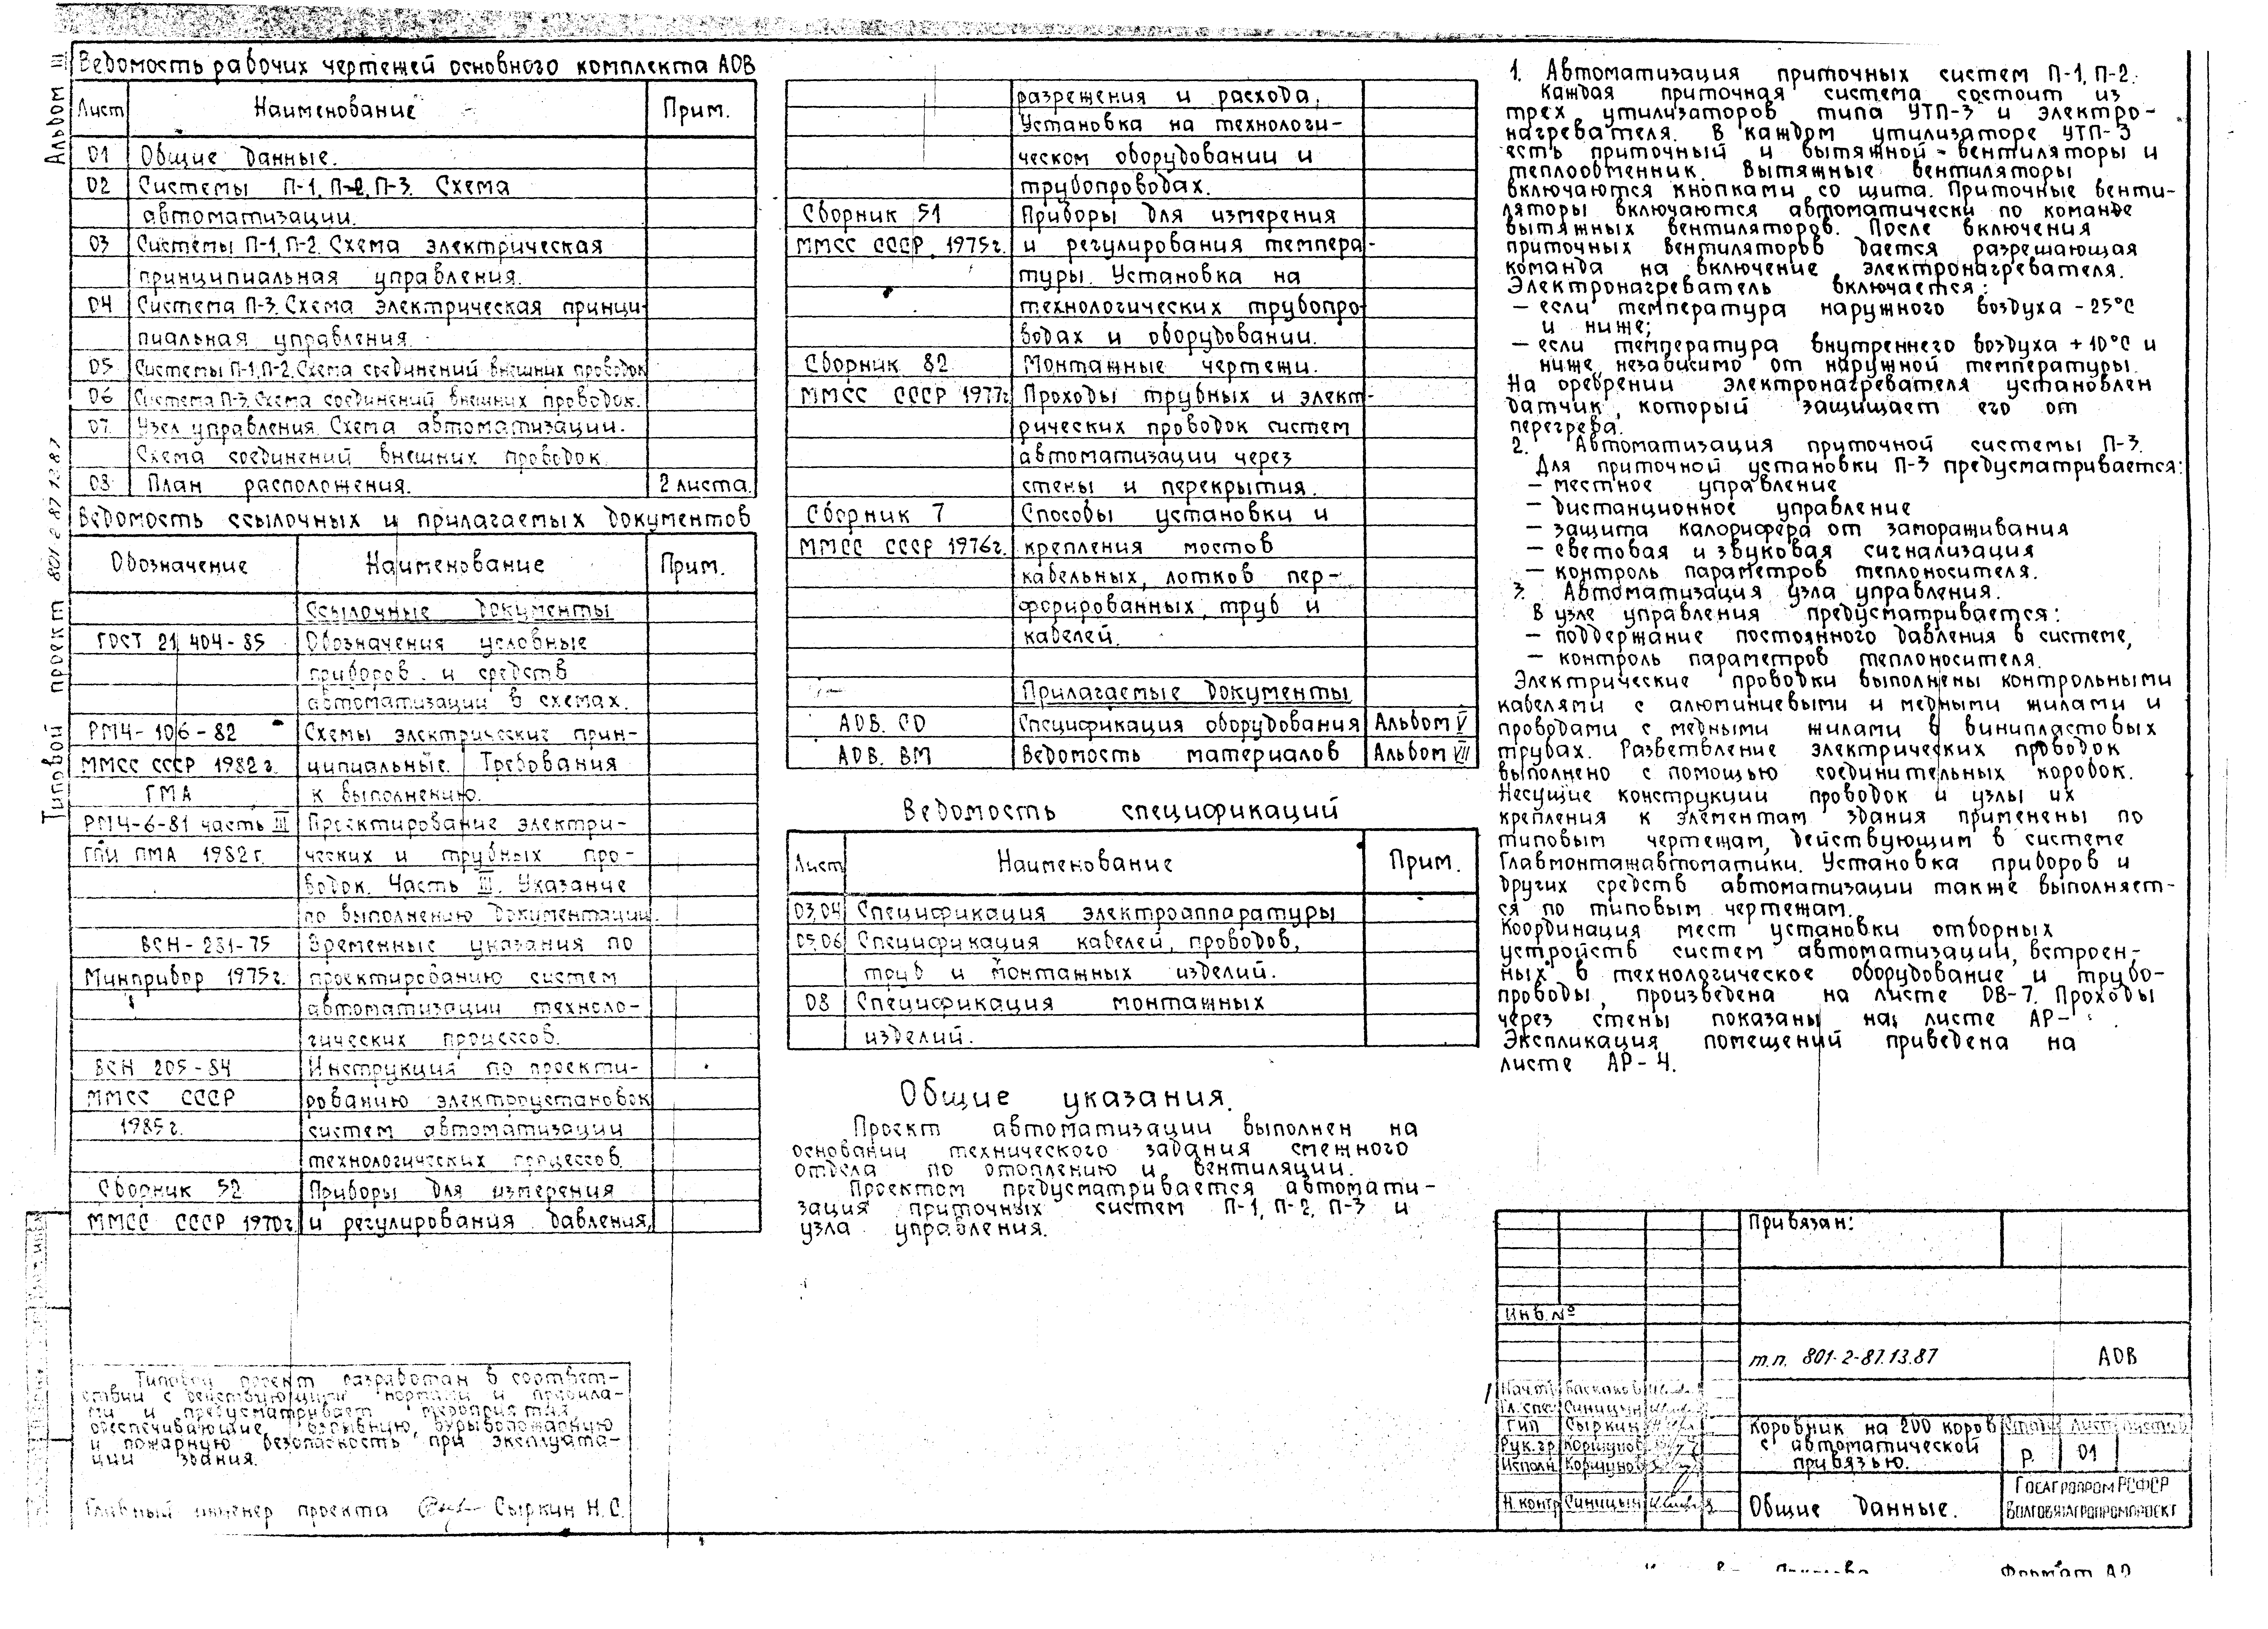 Альбом III
Типовой проект 801-2-87.13.87
Ведомость рабочих чертежей основного комплекта АОВ
Лист Наименование Прим.
01 Общие данные.
02 Системы П-1, П-2, П-3. Схема
автоматизации.
03 Системы П-1, П-2. Схема электрическая
принципиальная управления.
04 Система П-3. Схема электрическая принци-
пиальная управления.
05 Системы П-1, П-2. Схема соединений внешних проводок
06 Система П-3. Схема соединений внешних проводок.
07 Узел управления. Схема автоматизации.
Схема соединений внешних проводок.
08 План расположения. 2 листа.
Ведомость ссылочных и прилагаемых документов
Обозначение Наименование Прим.
Ссылочные документы
ГОСТ 21 404-85 Обозначения условные
приборов и средств
автоматизации в схемах.
РМ4-106-82 Схемы электрические прин-
ММСС СССР 1982г. ципиальные. Требования
ГМА к выполнению.
РМ4-6-81 часть III Проектирование электри-
ГПИ ПМА 1982г. ческих и трубных про-
водок. Часть III. Указание
по выполнению документации.
ВСН-281-75 Временные указания по
Минприбор 1975г. проектированию систем
автоматизации техноло-
гических процессов.
ВСН 205-84 Инструкция по проекти-
ММСС СССР рованию электроустановок
1985г. систем автоматизации
технологических процессов.
Сборник 52 Приборы для измерения
ММСС СССР 1970г. и регулирования давления,
Типовой проект разработан в соответ-
ствии с действующими нормами и правила-
ми и предусматривает мероприятия
обеспечивающие взрывную, взрывопожарную
и пожарную безопасность при эксплуата-
ции здания.
Главный инженер проекта Сыркин Н.С.
разрежения и расхода.
Установка на технологи-
ческом оборудовании и
трубопроводах.
Сборник 51 Приборы для измерения
ММСС СССР, 1975г. и регулирования темпера-
туры. Установка на
технологических трубопро-
водах и оборудовании.
Сборник 82 Монтажные чертежи.
ММСС СССР 1977г. Проходы трубных и элект-
рических проводок систем
автоматизации через
стены и перекрытия.
Сборник 7 Способы установки и
ММСС СССР 1976г. крепления мостов
кабельных, лотков пер-
форированных, труб и
кабелей.
Прилагаемые документы
АОВ. СО Спецификация оборудования Альбом V
АОВ. ВМ Ведомость материалов Альбом VII
Ведомость спецификаций
Лист Наименование Прим.
03,04 Спецификация электроаппаратуры
05,06 Спецификация кабелей, проводов,
труб и монтажных изделий.
08 Спецификация монтажных
изделий.
Общие указания.
Проект автоматизации выполнен на
основании технического задания смежного
отдела по отоплению и вентиляции.
Проектом предусматривается автомати-
зация приточных систем П-1, П-2, П-3 и
узла управления.
1. Автоматизация приточных систем П-1, П-2.
Каждая приточная система состоит из
трех утилизаторов типа УТП-3 и электро-
нагревателя. В каждом утилизаторе УТП-3
есть приточный и вытяжной - вентиляторы и
теплообменник. Вытяжные вентиляторы
включаются кнопками со щита. Приточные венти-
ляторы включаются автоматически по команде
вытяжных вентиляторов. После включения
приточных вентиляторов дается разрешающая
команда на включение электронагревателя.
Электронагреватель включается:
- если температура наружного воздуха -25°С
и ниже;
- если температура внутреннего воздуха +10°С и
ниже, независимо от наружной температуры.
На оребрении электронагревателя установлен
датчик, который защищает его от
перегрева.
2. Автоматизация приточной системы П-3.
Для приточной установки П-3 предусматривается:
- местное управление
- дистанционное управление
- защита калорифера от замораживания
- световая и звуковая сигнализация
- контроль параметров теплоносителя.
3. Автоматизация узла управления.
В узле управления предусматривается:
- поддержание постоянного давления в системе,
- контроль параметров теплоносителя.
Электрические проводки выполнены контрольными
кабелями с алюминиевыми и медными жилами и
проводами с медными жилами в винипластовых
трубах. Разветвление электрических проводок
выполнено с помощью соединительных коробок.
Несущие конструкции проводок и узлы их
крепления к элементам здания применены по
типовым чертежам, действующим в системе
Главмонтажавтоматики. Установка приборов и
других средств автоматизации также выполняет-
ся по типовым чертежам.
Координация мест установки отборных
устройств систем автоматизации, встроен-
ных в технологическое оборудование и трубо-
проводы, произведена на листе ОВ-7. Проходы
через стены показаны на листе АР-
Экспликация помещений приведена на
листе АР-4.
Привязан:
Инв.№
т.п. 801-2-87.13.87 АОВ
Нач.отд. Баскаков
Гл.спец. Синицын
ГИП Сыркин
Рук.гр. Коршунов
Исполн. Коршунов
Н.контр Синицын
Коровник на 200 коров
с автоматической
привязью.
Стадия Лист Листов
Р. 01
Общие данные.
Госагропром РСФСР
Волговятагропромпроект
Формат А2